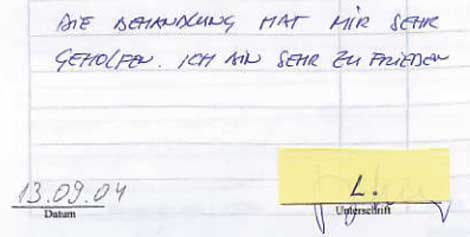 DIE BEHANDLUNG HAT MIR SEHR
GEHOLFEN. ICH BIN SEHR ZU FRIEDEN
13.09.04
L.
Datum
Unterschrift